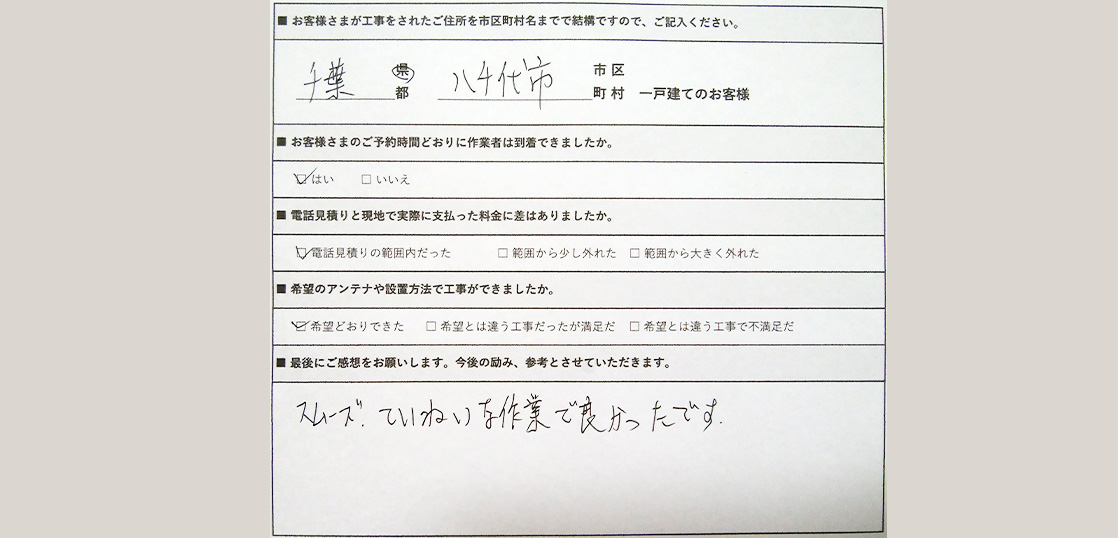 ■ お客様さまが工事をされたご住所を市区町村名までで結構ですので、ご記入ください。
千葉 県 八千代市 市 区
都 町 村 一戸建てのお客様
■ お客様さまのご予約時間どおりに作業者は到着できましたか。
☑ はい □ いいえ
■ 電話見積りと現地で実際に支払った料金に差はありましたか。
☑ 電話見積りの範囲内だった □ 範囲から少し外れた □ 範囲から大きく外れた
■ 希望のアンテナや設置方法で工事ができましたか。
☑ 希望どおりできた □ 希望とは違う工事だったが満足だ □ 希望とは違う工事で不満足だ
■ 最後にご感想をお願いします。今後の励み、参考とさせていただきます。
スムーズ、ていねいな作業で良かったです.